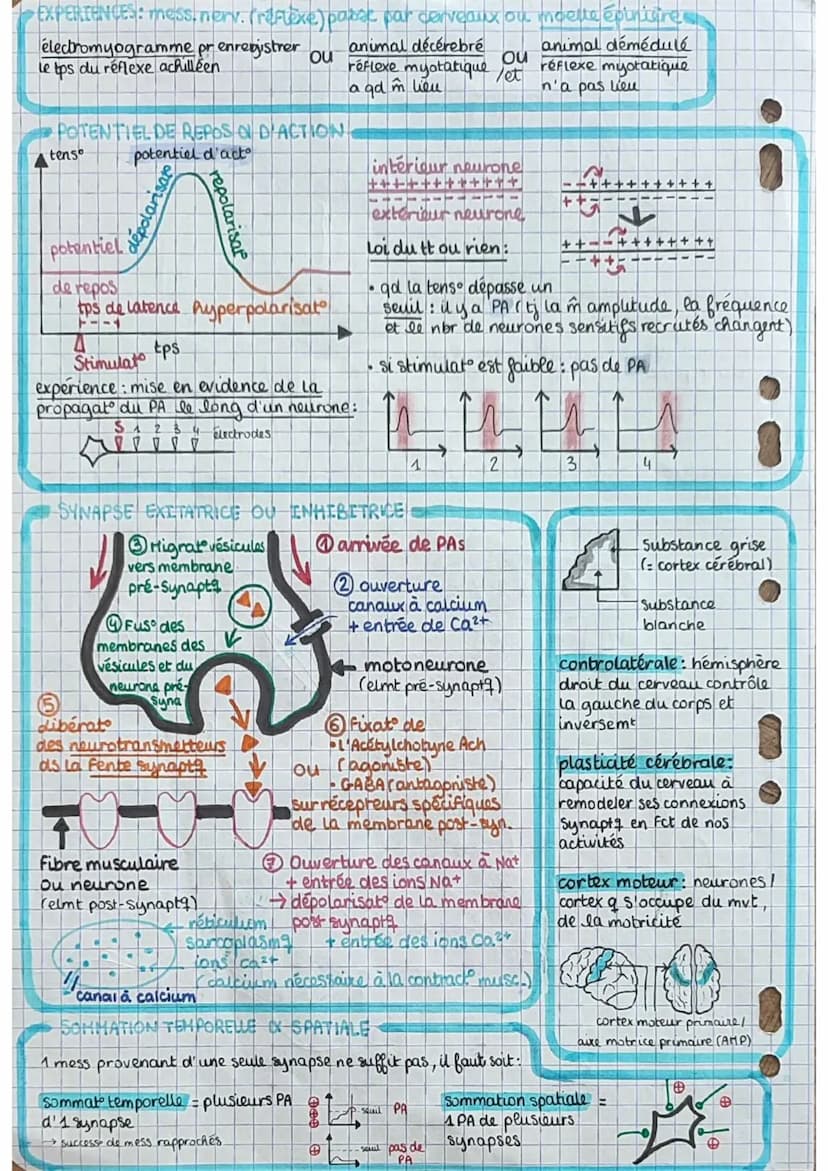 EXPERIENCES: mess. nerv. (réflexe) passe par cerveaux ou moelle épinière
électromyogramme pr enregistrer
le tps du réflexe achilléen
OU
animal décérebré
réflexe myotatique
a qd m̂ lieu
OU
/et
animal démédulé
réflexe myotatique
n'a pas lieu
POTENTIEL DE REPOS & D'ACTION
tens°
potentiel d'act°
dépolarisat°
repolarisat°
potentiel
de repos
tps de latence
hyperpolarisat°
Stimulat°
tps
intérieur neurone
+++++++++++++
– – – – – – – – – – – –
extérieur neurone
– – + + + + + + + + + + +
+ + – – – – – – – – –
+ + – – + + + + + + + +
– – + + – – – – – – –
Loi du tt ou rien:
• qd la tens° dépasse un
seuil : il y a PA (tj la m̂ amplutude, la fréquence
et le nbr de neurones sensitifs recrutés changent)
• si stimulat° est faible : pas de PA
expérience : mise en evidence de la
propagat° du PA le long d'un neurone:
S 1 2 3 4 électrodes
1 2 3 4
SYNAPSE EXITATRICE OU INHIBITRICE
① arrivée de PAs
② ouverture
canaux à calcium
+ entrée de Ca²⁺
③ Migrat° vésicules
vers membrane
pré-synaptq
④ Fus° des
membranes des
vésicules et du
neurone pré-
syna
motoneurone
(elmt pré-synaptq)
⑤
libérat°
des neurotransmetteurs
ds la Fente synaptq
⑥ Fixat° de
• L'Acétylchotyne Ach
(agoniste)
ou
• GABA (antagoniste)
sur récepteurs spécifiques
de la membrane post-syn.
Fibre musculaire
ou neurone
(elmt post-synaptq)
⑦ Ouverture des canaux à Na⁺
+ entrée des ions Na⁺
→ dépolarisat° de la membrane
post synaptq
+ entrée des ions Ca²⁺
réticulum
sarcoplasmq
ions Ca²⁺
(calcium nécessaire à la contract° musc.)
canal à calcium
Substance grise
(= cortex cérébral)
Substance
blanche
controlatérale : hémisphère
droit du cerveau contrôle
la gauche du corps et
inversemt
plasticité cérébrale:
capacité du cerveau à
remodeler ses connexions
synaptq en Fct de nos
activités
cortex moteur : neurones /
cortex q s'occupe du mvt,
de la motricité
cortex moteur primaire /
aire motrice primaire (AMP)
SOMMATION TEMPORELLE & SPATIALE
1 mess provenant d'une seule synapse ne suffit pas, il faut soit:
sommat° temporelle = plusieurs PA
d'1 synapse
→ success° de mess rapprochés
⊕
⊕
⊕
seuil PA
⊕
seuil pas de
PA
Sommation spatiale =
1 PA de plusieurs
synapses
⊕
⊕
⊕